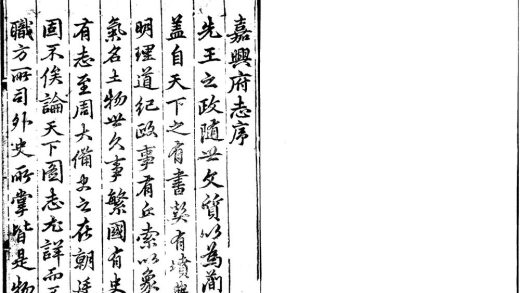 嘉興府志序
先王之政隨世文質以為簡
蓋自天下之有書契有墳典
明理道紀政事有丘索以象
氣名土物世久事繁國有史
有志至周大備史之在朝廷
固不俟論天下圖志尤詳而
職方所司外史所掌皆是物